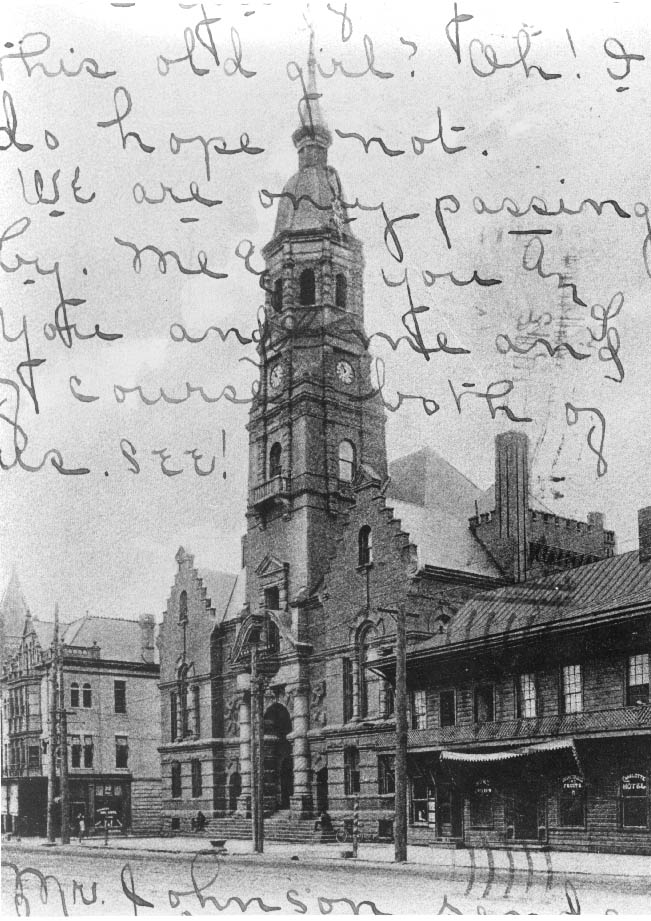 this old girl? Oh! I
do hope not.
We are only passing
by. Me & you an
You and me and
of course both of
us. SEE!
CHARLOTTE
HOTEL
Mr. Johnson